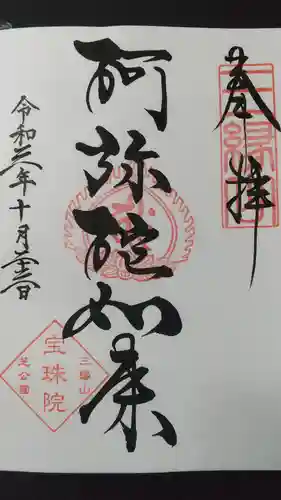 奉拝
阿弥陀如来
令和三年十月二十三日
三縁山
宝珠院
芝公園